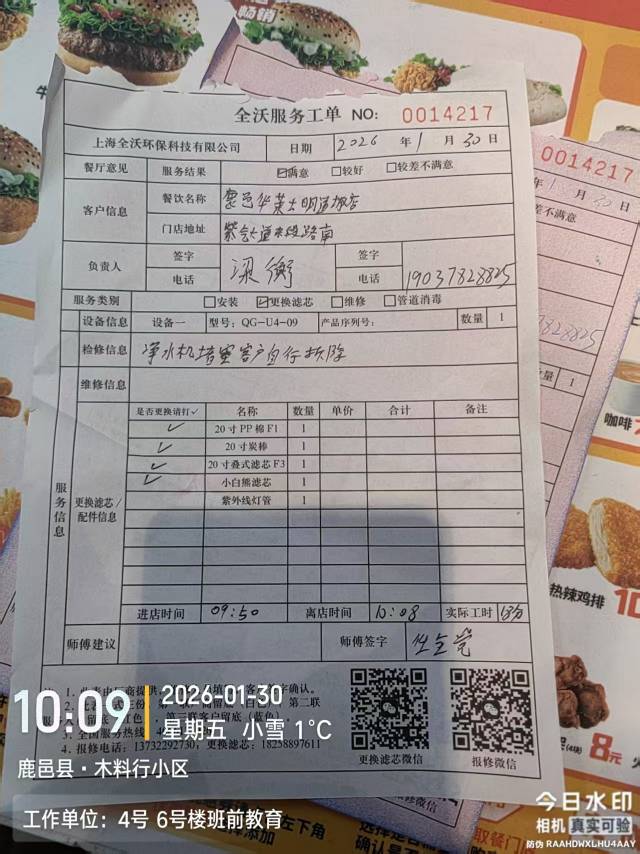 畅销
全沃服务工单 NO: 0014217
上海全沃环保科技有限公司 日期 2026 年 1 月 30 日
餐厅意见 服务结果 ☑满意 □较好 □较差不满意
客户信息 餐饮名称 鹿邑华莱士明道城店
门店地址 紫气大道末段路南
负责人 签字 梁衡 签字
电话 电话 19037828825
服务类别 □安装 ☑更换滤芯 □维修 □管道消毒
设备信息 设备一 型号: QG-U4-09 产品序列号: 数量 1
检修信息 净水机堵塞客户自行拆除
维修信息
服务信息 更换滤芯/配件信息
是否更换请打✓ 名称 数量 单价 合计 备注
✓ 20寸PP棉F1 1
✓ 20寸炭棒 1
✓ 20寸叠式滤芯F3 1
✓ 小白熊滤芯 1
紫外线灯管 1
进店时间 09:50 离店时间 10:08 实际工时 18分
师傅建议 师傅签字
4. 报修电话: 13732292730, 更换滤芯: 18258897611
更换滤芯微信 报修微信
0014217
年 1 月 30 日
差不满意
数量 1
备注
咖啡
热辣鸡排 10
8元
10:09 2026-01-30
星期五 小雪 1°C
鹿邑县·木料行小区
工作单位: 4号 6号楼班前教育
今日水印
相机 真实可验
防伪 RAAHDWXLHU4AAY